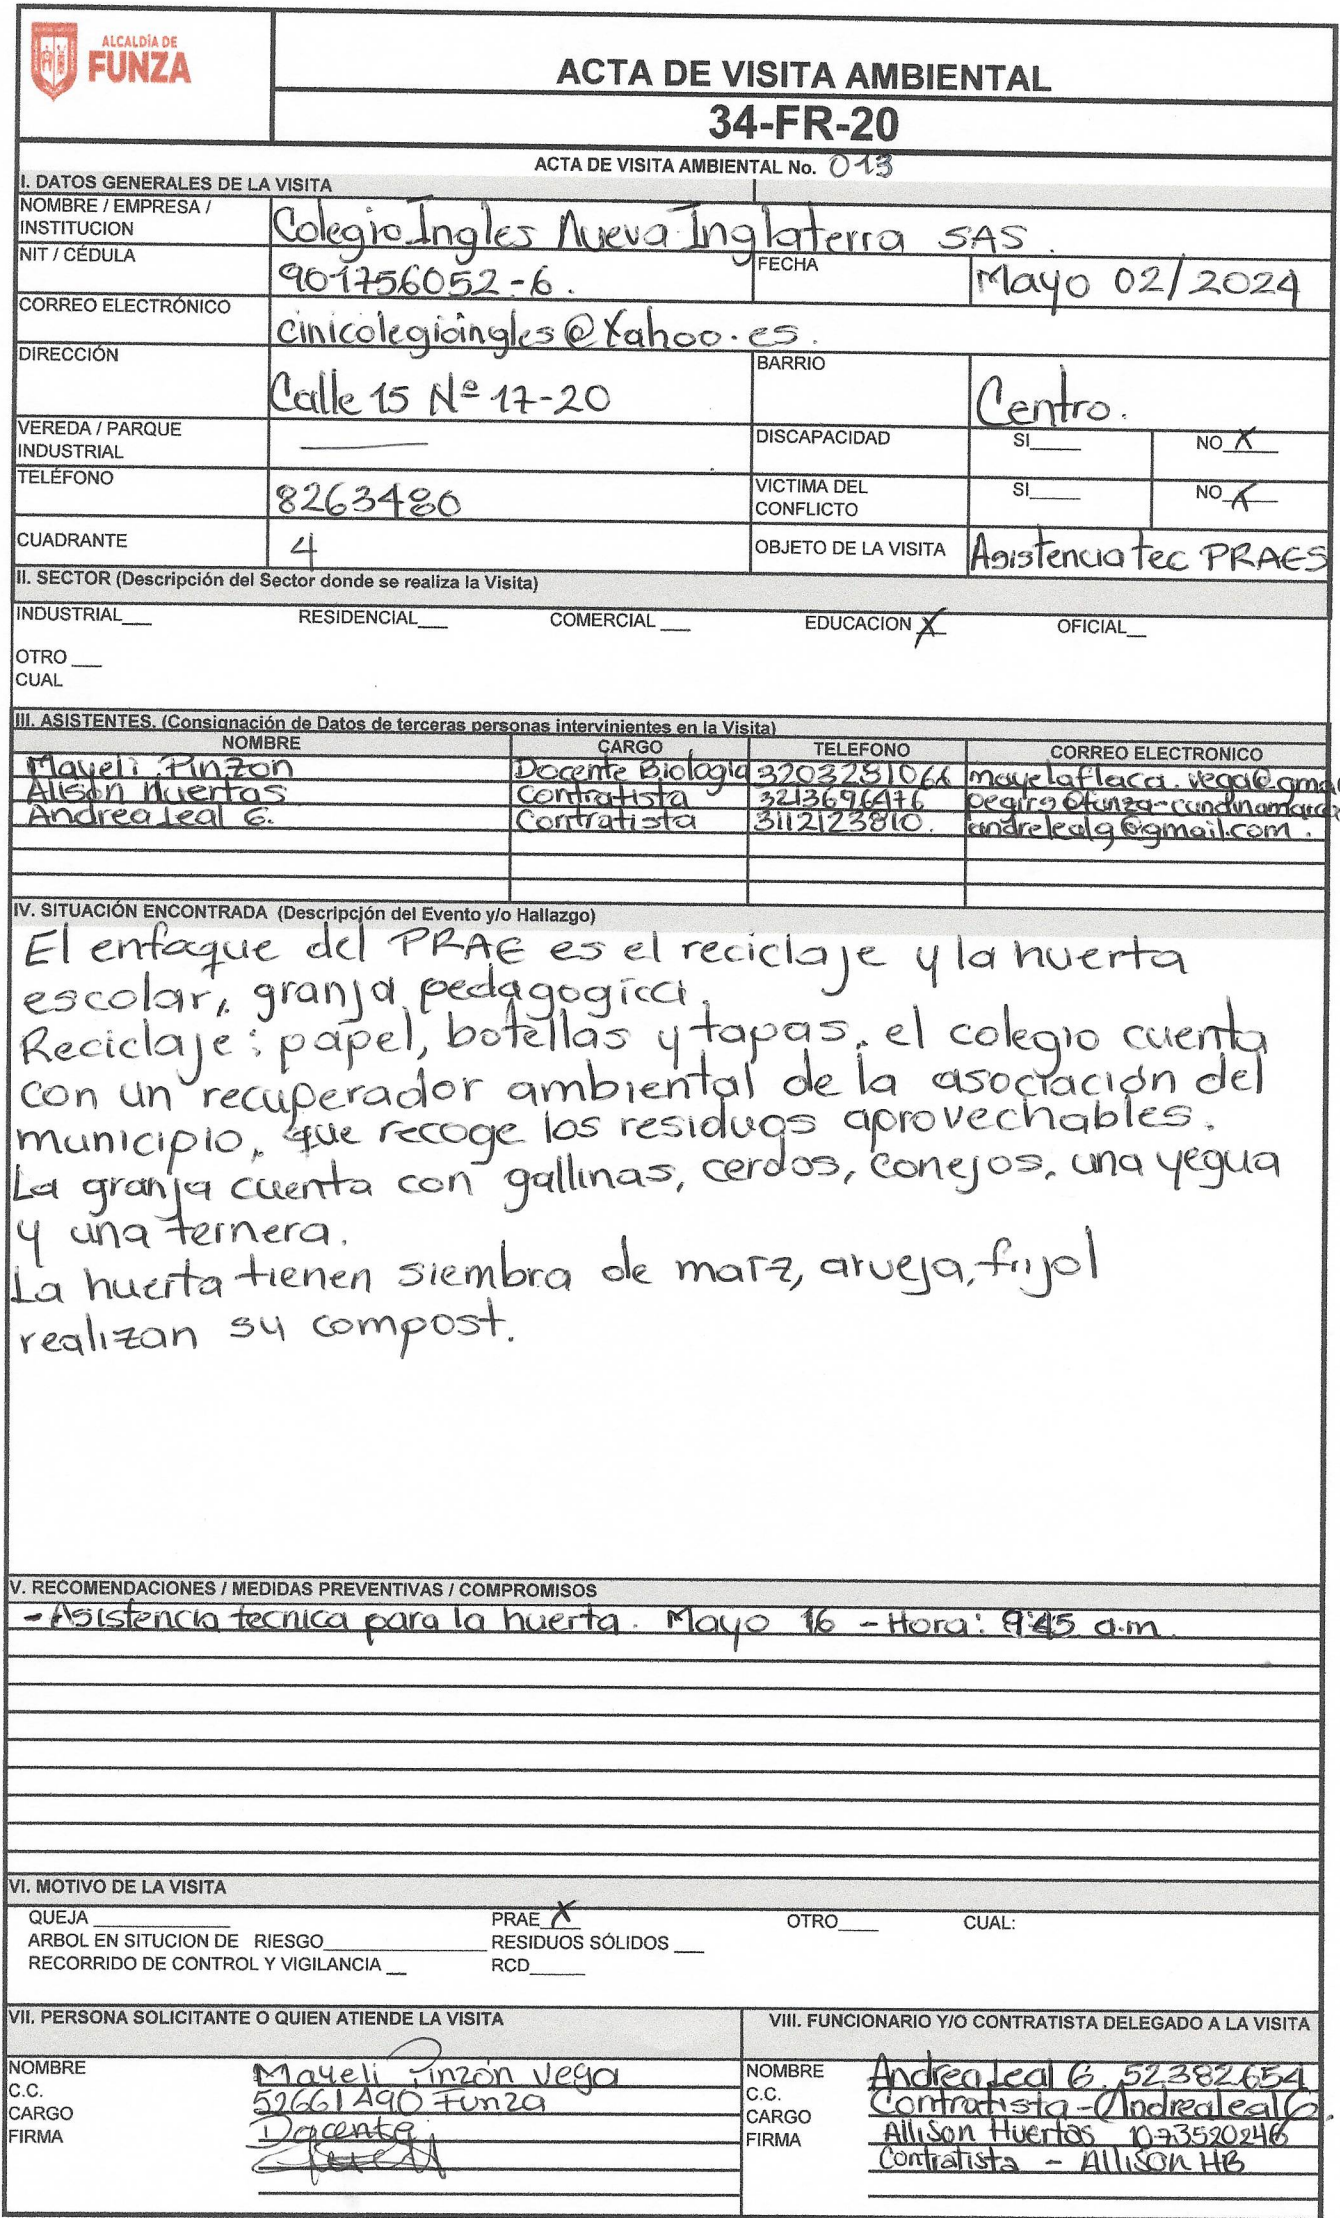 ALCALDÍA DE
FUNZA
ACTA DE VISITA AMBIENTAL
34-FR-20
ACTA DE VISITA AMBIENTAL No. 013
I. DATOS GENERALES DE LA VISITA
NOMBRE / EMPRESA / INSTITUCION Colegio Ingles Nueva Inglaterra SAS.
NIT / CÉDULA 901756052-6. FECHA Mayo 02/2024
CORREO ELECTRÓNICO cinicolegioingles@Yahoo.es.
DIRECCIÓN Calle 15 Nº 17-20 BARRIO Centro.
VEREDA / PARQUE INDUSTRIAL DISCAPACIDAD SI____ NO X
TELÉFONO 8263480 VICTIMA DEL CONFLICTO SI____ NO X
CUADRANTE 4 OBJETO DE LA VISITA Asistencia tec PRAES
II. SECTOR (Descripción del Sector donde se realiza la Visita)
INDUSTRIAL___ RESIDENCIAL___ COMERCIAL ___ EDUCACION X OFICIAL__
OTRO ___
CUAL
III. ASISTENTES. (Consignación de Datos de terceras personas intervinientes en la Visita)
NOMBRE CARGO TELEFONO CORREO ELECTRONICO
Mayeli Pinzon Docente Biologia 3203231066 mayelaflaca.vega@gmai
Alison Huertas Contratista 3213696476 @funza-cundinamarca
Andrea Leal G. Contratista 3112123810. andrelealg@gmail.com.
IV. SITUACIÓN ENCONTRADA (Descripción del Evento y/o Hallazgo)
El enfoque del PRAE es el reciclaje y la huerta
escolar, granja pedagogica.
Reciclaje: papel, botellas y tapas. el colegio cuenta
con un recuperador ambiental de la asociación del
municipio, que recoge los residuos aprovechables.
La granja cuenta con gallinas, cerdos, conejos, una yegua
y una ternera.
La huerta tienen siembra de maíz, arveja, frijol
realizan su compost.
V. RECOMENDACIONES / MEDIDAS PREVENTIVAS / COMPROMISOS
- Asistencia tecnica para la huerta. Mayo 16 - Hora: 9:45 a.m.
VI. MOTIVO DE LA VISITA
QUEJA ____________ PRAE X OTRO____ CUAL:
ARBOL EN SITUCION DE RIESGO______________ RESIDUOS SÓLIDOS ___
RECORRIDO DE CONTROL Y VIGILANCIA __ RCD_____
VII. PERSONA SOLICITANTE O QUIEN ATIENDE LA VISITA VIII. FUNCIONARIO Y/O CONTRATISTA DELEGADO A LA VISITA
NOMBRE Mayeli Pinzón Vega NOMBRE Andrea Leal G. 52382654
C.C. 52661490 Funza C.C. Contratista - Andrea Leal G.
CARGO Docente CARGO Allison Huertas 1073520246
FIRMA FIRMA Contratista - Allison HB